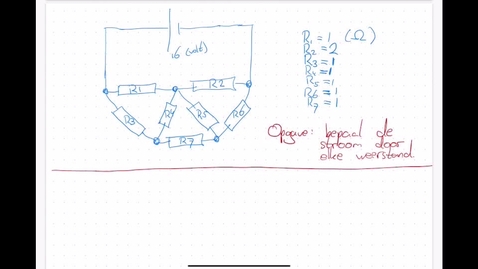 16 (volt)
R1 R2
R3 R4 R5 R6
R7
R1 = 1 (Ω)
R2 = 2
R3 = 1
R4 = 1
R5 = 1
R6 = 1
R7 = 1
Opgave: bepaal de
stroom door
elke weerstand